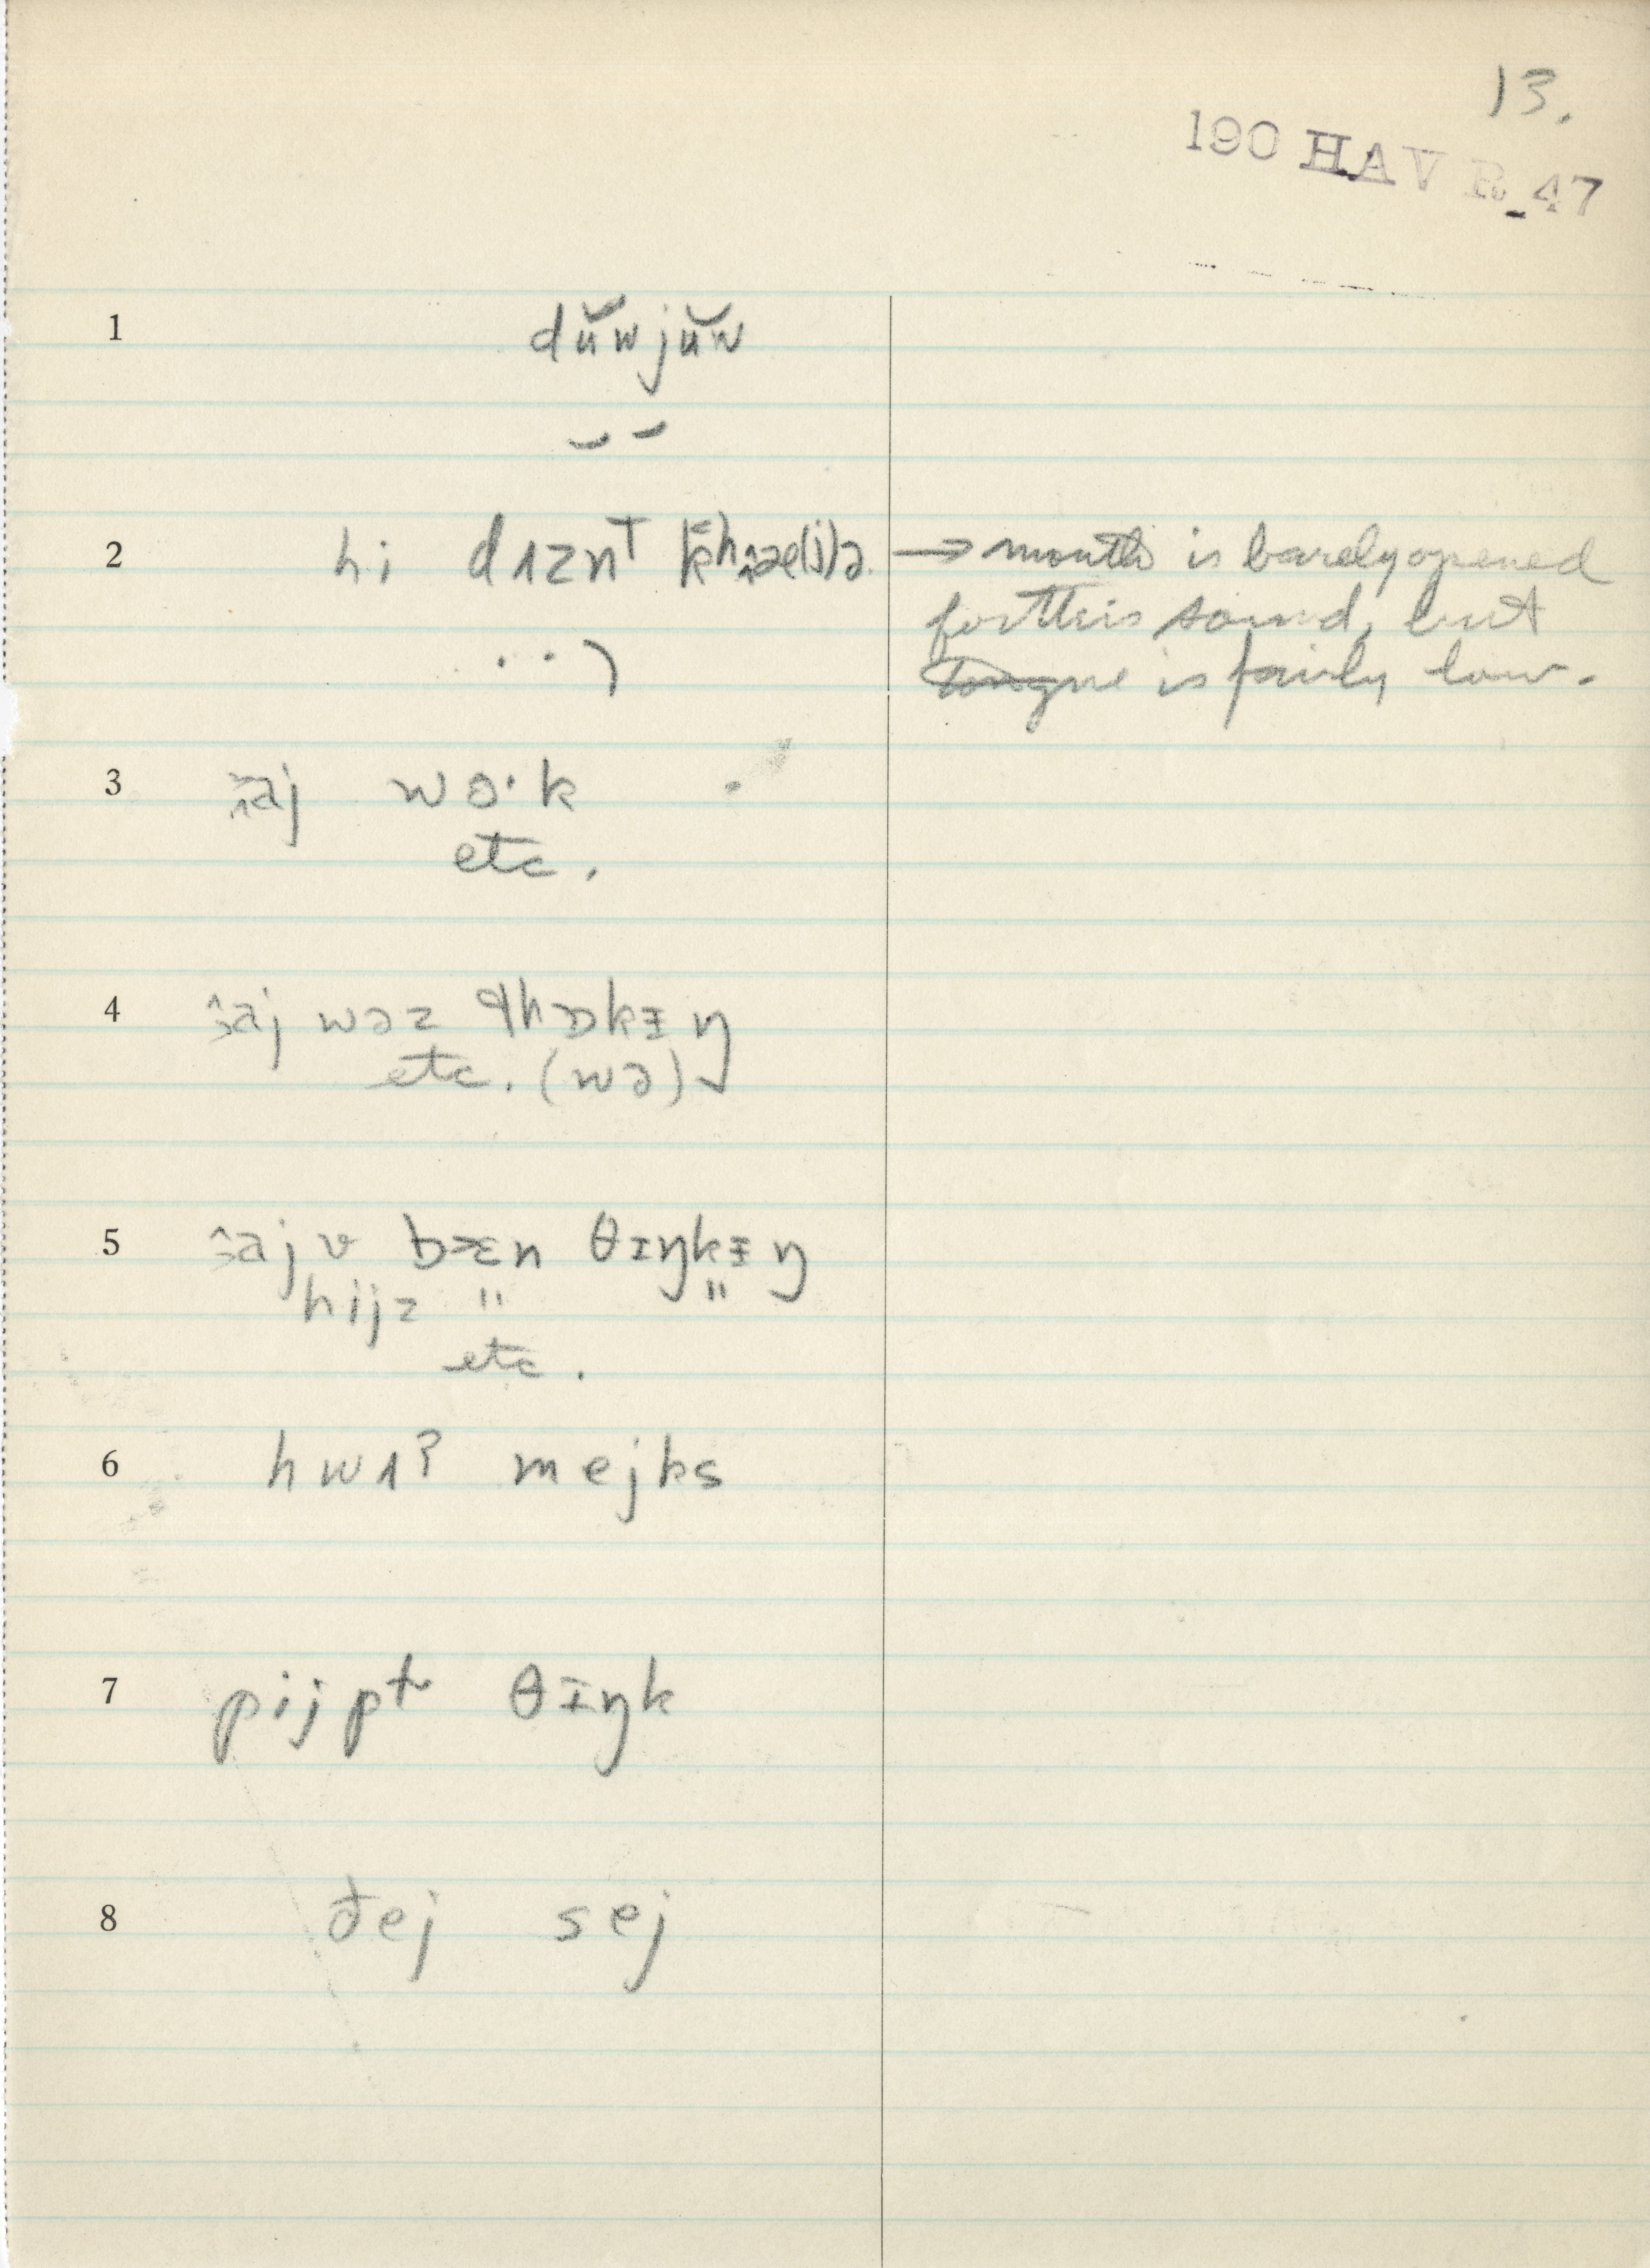 13.
190 HAV R 47
1 dŭwjŭw
2 hi → mouth is barely opened
for this sound, but
tongue is fairly low.
3 wɔ·k
etc.
4 wəz
etc. (wə)
5 bɪn θɪŋkɪŋ
hijz " "
etc.
6 hwʌʔ mejks
7 pijpɫ θɪŋk
8 đej sej